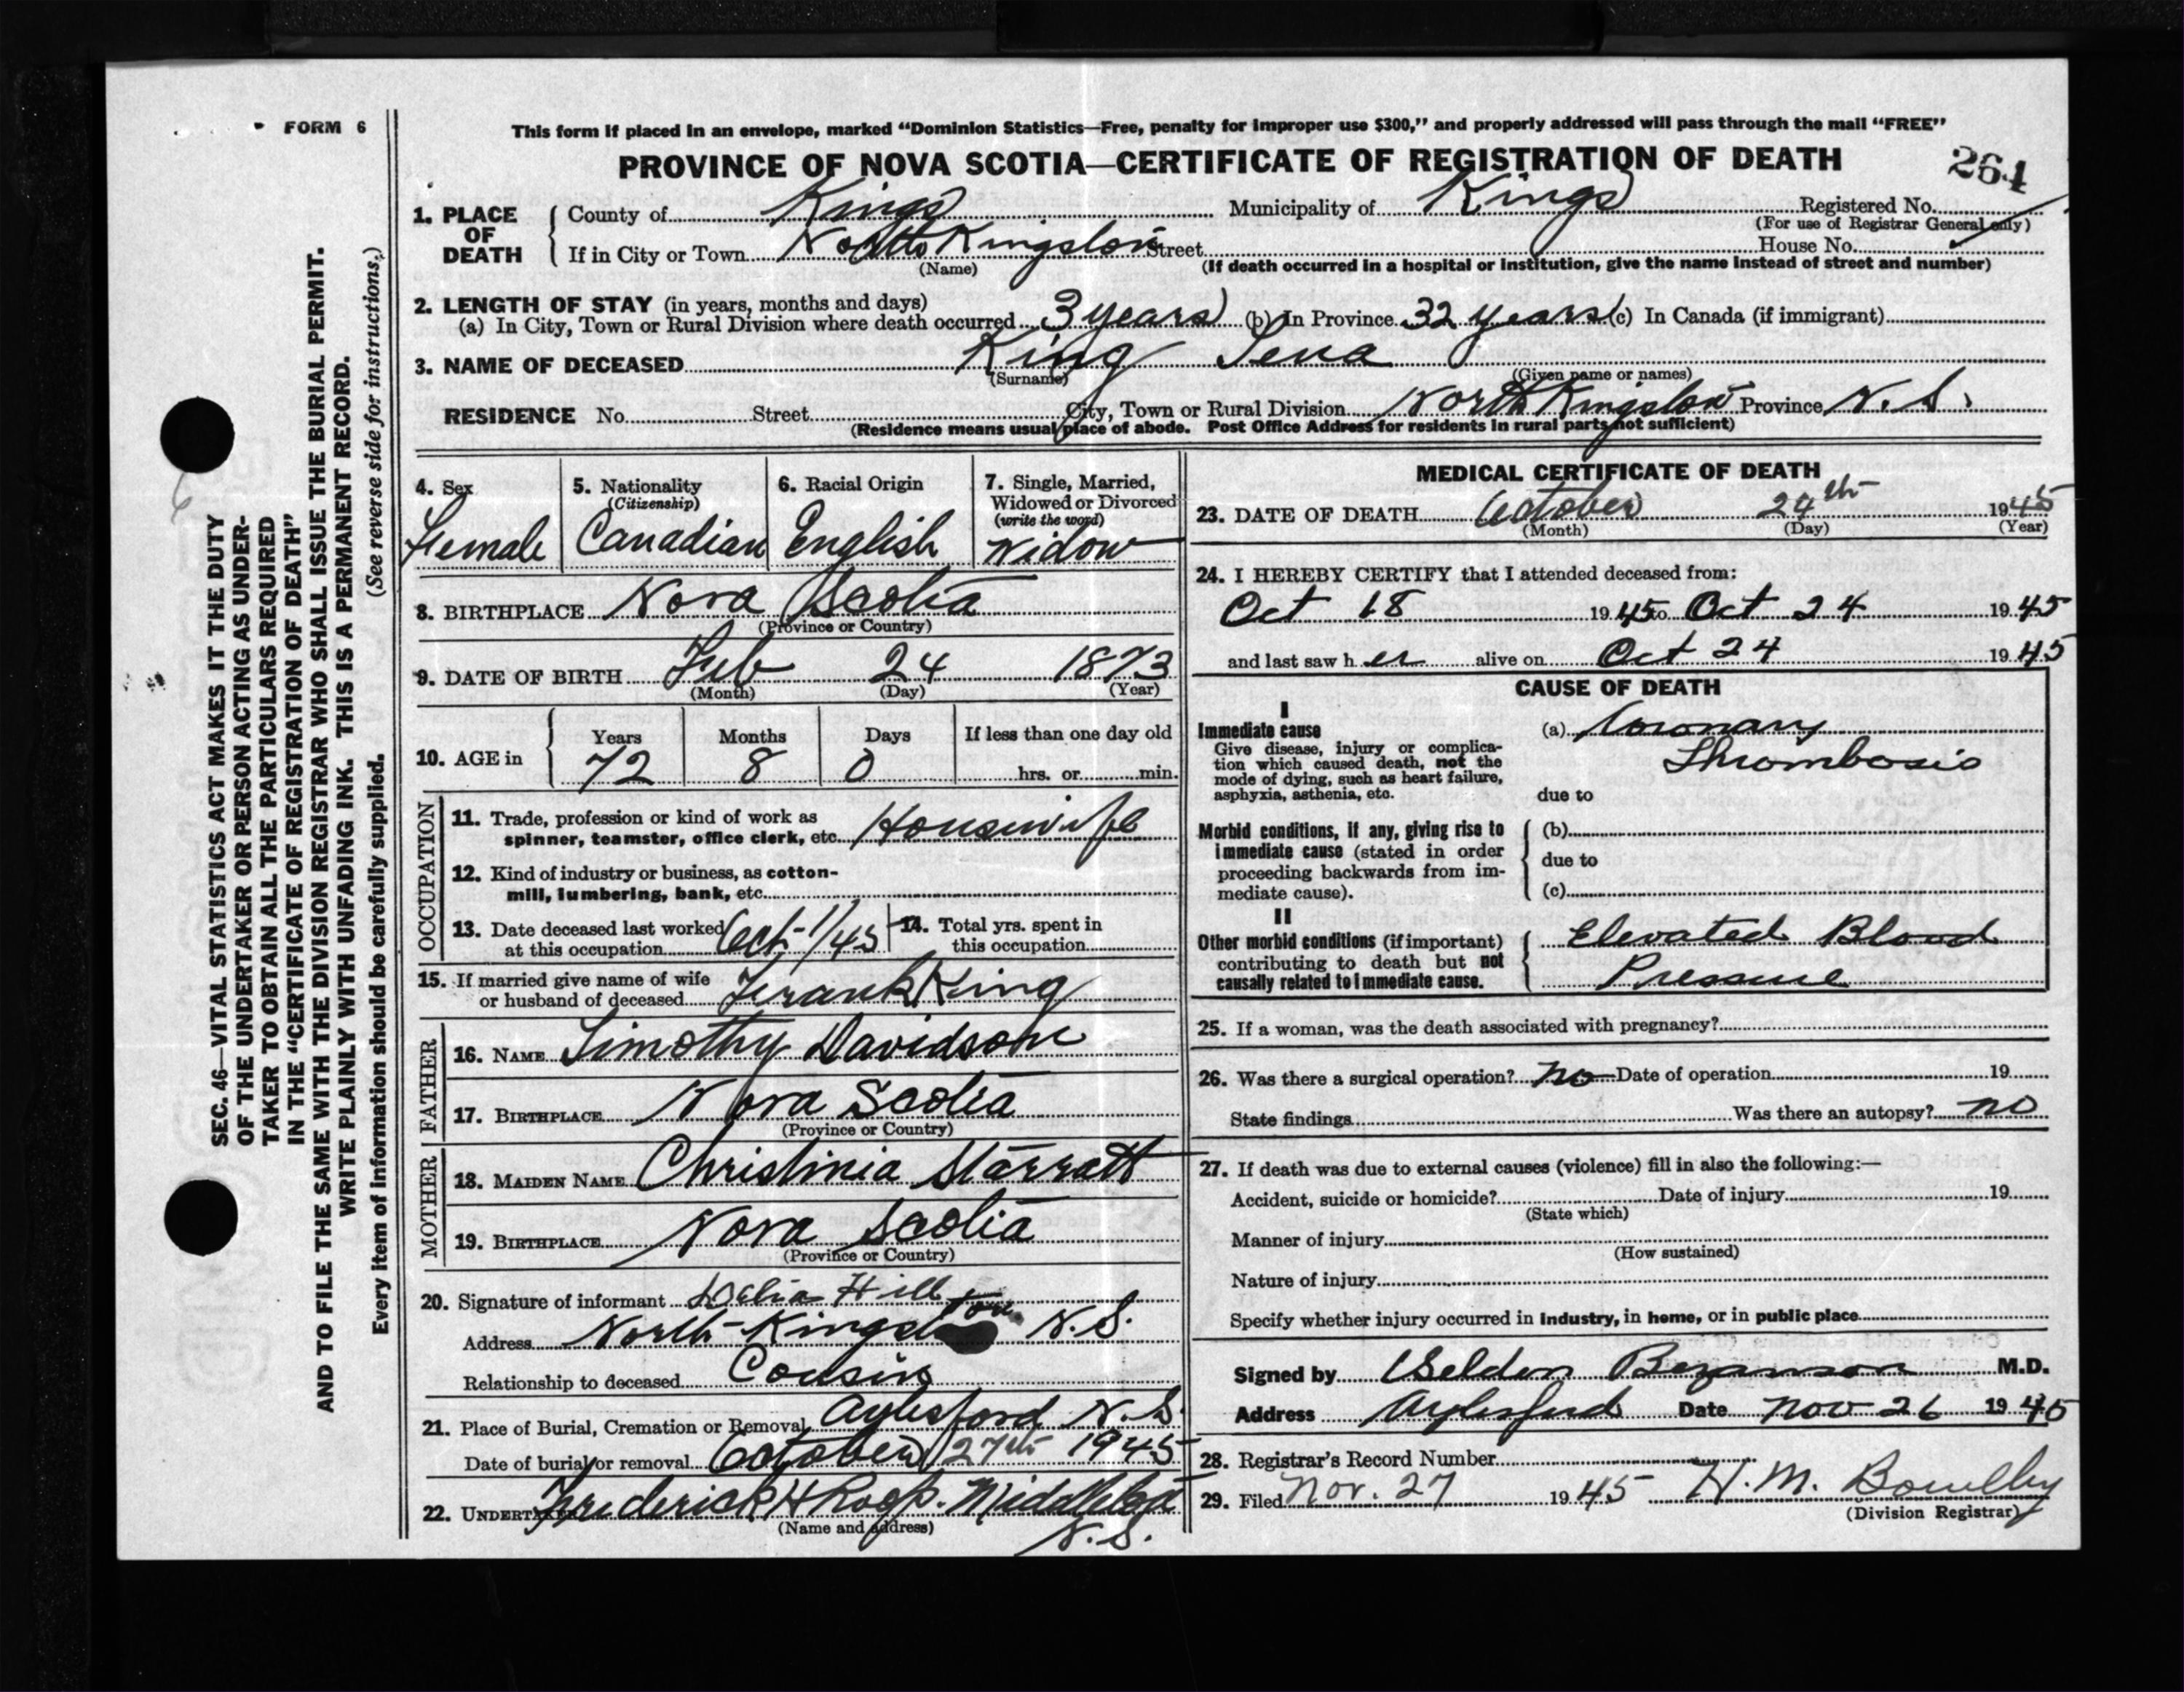 FORM 6
This form if placed in an envelope, marked “Dominion Statistics—Free, penalty for improper use $300,” and properly addressed will pass through the mail “FREE”
PROVINCE OF NOVA SCOTIA—CERTIFICATE OF REGISTRATION OF DEATH
264
1. PLACE OF DEATH
County of Kings Municipality of Kings Registered No.
(For use of Registrar General only)
If in City or Town North Kingston Street House No.
(Name) (If death occurred in a hospital or institution, give the name instead of street and number)
2. LENGTH OF STAY (in years, months and days)
(a) In City, Town or Rural Division where death occurred 3 years (b) In Province 32 years (c) In Canada (if immigrant)
3. NAME OF DECEASED King Lena
(Surname) (Given name or names)
RESIDENCE No. Street City, Town or Rural Division North Kingston Province N.S.
(Residence means usual place of abode. Post Office Address for residents in rural parts not sufficient)
4. Sex
Female
5. Nationality
(Citizenship)
Canadian
6. Racial Origin
English
7. Single, Married,
Widowed or Divorced
(write the word)
Widow
8. BIRTHPLACE Nova Scotia
(Province or Country)
9. DATE OF BIRTH Feb 24 1873
(Month) (Day) (Year)
10. AGE in
Years Months Days If less than one day old
72 8 0 hrs. or min.
OCCUPATION
11. Trade, profession or kind of work as
spinner, teamster, office clerk, etc. Housewife
12. Kind of industry or business, as cotton-
mill, lumbering, bank, etc.
13. Date deceased last worked
at this occupation Oct 1/45
14. Total yrs. spent in
this occupation
15. If married give name of wife
or husband of deceased Frank King
FATHER
16. NAME Timothy Davidson
17. BIRTHPLACE Nova Scotia
(Province or Country)
MOTHER
18. MAIDEN NAME Christinia Starratt
19. BIRTHPLACE Nova Scotia
(Province or Country)
20. Signature of informant Delia Hill
Address North Kingston N.S.
Relationship to deceased Cousin
21. Place of Burial, Cremation or Removal Aylesford N.S.
Date of burial or removal October 27th 1945
22. UNDERTAKER Frederick H Roop. Middleton
(Name and address) N.S.
MEDICAL CERTIFICATE OF DEATH
23. DATE OF DEATH October 24th 1945
(Month) (Day) (Year)
24. I HEREBY CERTIFY that I attended deceased from:
Oct 18 1945 to Oct 24 1945
and last saw her alive on Oct 24 1945
CAUSE OF DEATH
I
Immediate cause
Give disease, injury or complica-
tion which caused death, not the
mode of dying, such as heart failure,
asphyxia, asthenia, etc.
(a) Coronary
Thrombosis
due to
Morbid conditions, if any, giving rise to
immediate cause (stated in order
proceeding backwards from im-
mediate cause).
(b)
due to
(c)
II
Other morbid conditions (if important)
contributing to death but not
causally related to immediate cause.
Elevated Blood
Pressure
25. If a woman, was the death associated with pregnancy?
26. Was there a surgical operation? No Date of operation 19
State findings Was there an autopsy? no
27. If death was due to external causes (violence) fill in also the following:—
Accident, suicide or homicide? Date of injury 19
(State which)
Manner of injury
(How sustained)
Nature of injury
Specify whether injury occurred in industry, in home, or in public place
Signed by Selden Bezanson M.D.
Address Aylesford Date Nov 26 1945
28. Registrar's Record Number
29. Filed Nov. 27 1945 H. M. Bowlby
(Division Registrar)
SEC. 46—VITAL STATISTICS ACT MAKES IT THE DUTY
OF THE UNDERTAKER OR PERSON ACTING AS UNDER-
TAKER TO OBTAIN ALL THE PARTICULARS REQUIRED
IN THE “CERTIFICATE OF REGISTRATION OF DEATH”
AND TO FILE THE SAME WITH THE DIVISION REGISTRAR WHO SHALL ISSUE THE BURIAL PERMIT.
WRITE PLAINLY WITH UNFADING INK. THIS IS A PERMANENT RECORD.
Every item of information should be carefully supplied. (See reverse side for instructions.)